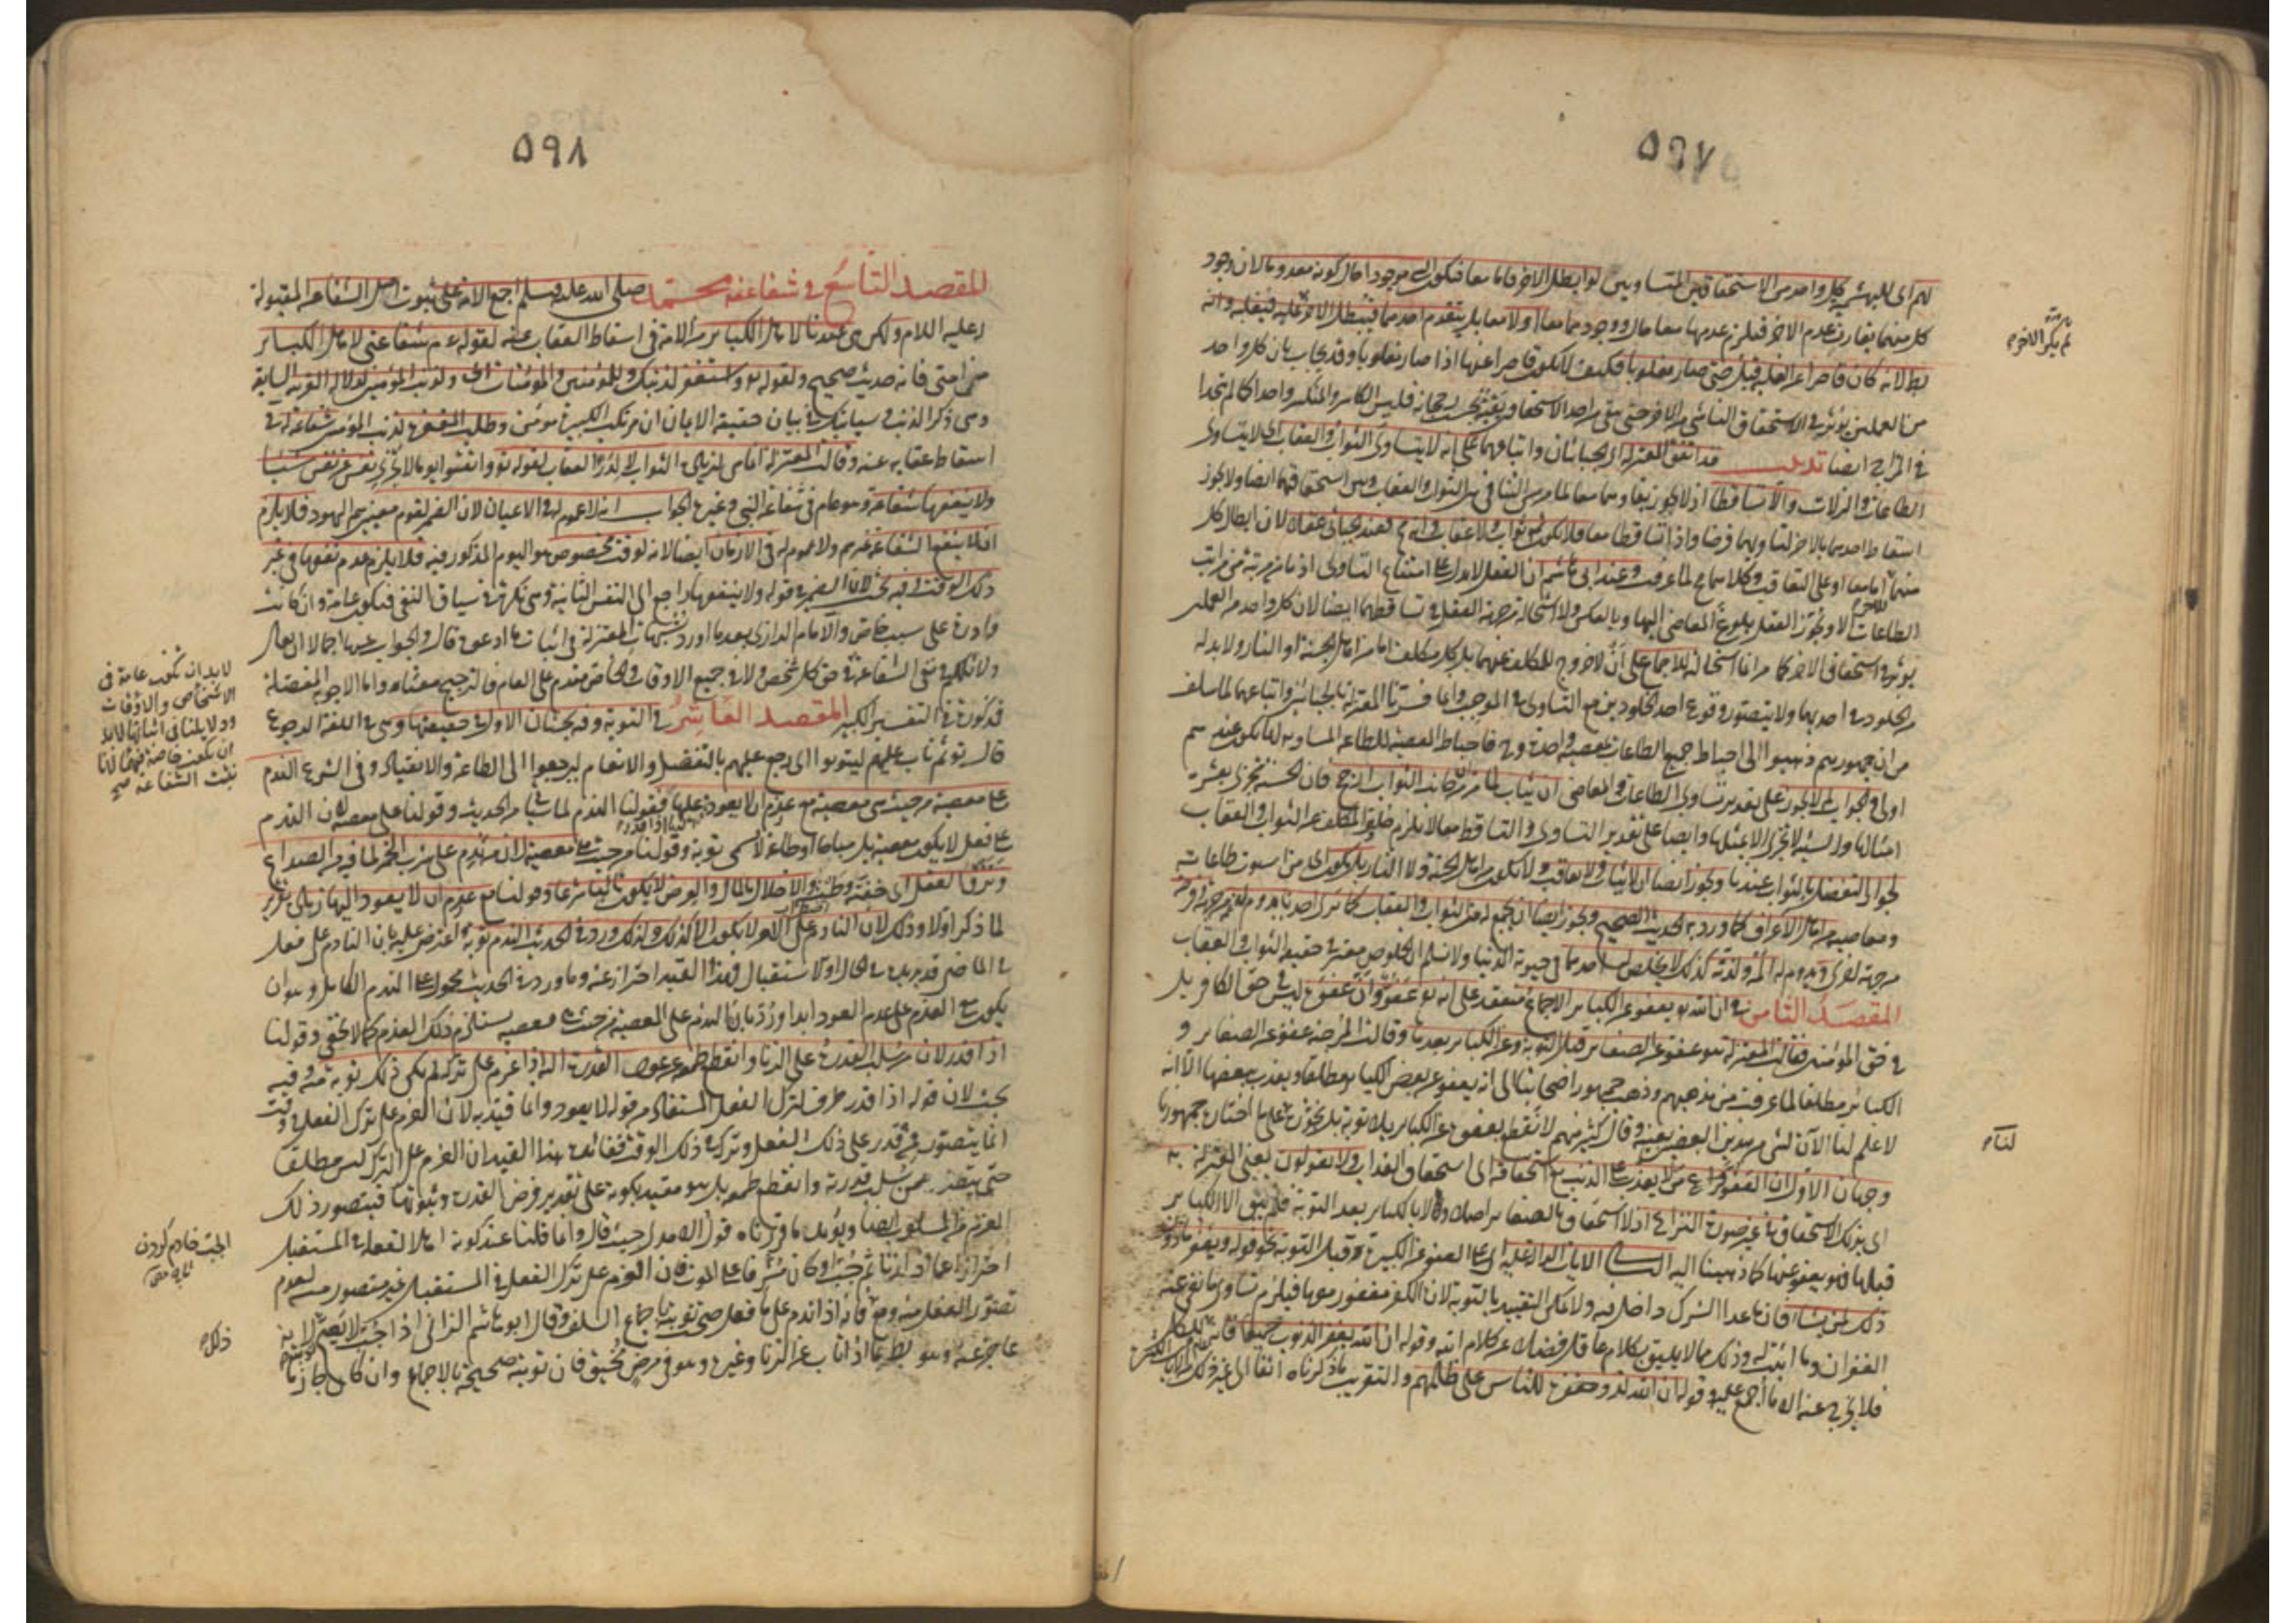 ٥٩٧
لهم اى للبهشمية كل واحد من الاستحقاقين المتساويين لو ابطل الآخر فاما معا فيكون الشئ موجودا حال كونه معدوما لان وجود
كل منهما يقارن عدم الآخر فيلزم عدمهما معا حال وجودهما معا او لا معا بل يتقدم احدهما فيبطل الآخر ثم ينقلب عليه فيغلبه وانه
بط لانه كان قاصرا عن الغلبة قبل حتى صار مغلوبا فكيف لا يكون قاصرا عنها اذا صار مغلوبا وقد يجاب بان كل واحد
من العملين يؤثر في الاستحقاق الناشى من الآخر حتى يبقى من احد الاستحقاقين بقية بحسب رجحانه فليس الكاسر والمنكسر واحدا كما لم يتحدا
في المزاج ايضا تذنيب قد اتفق المعتزلة اى الجبائيان واتباعهما على انه لا يتساوى الثواب والعقاب اى لا يتساوى
الطاعات والزلات والا تساقطا اذ لا يجوز بقاؤهما معا لما مر من التنافى بين الثواب والعقاب وبين استحقاقهما ايضا ولا يجوز
اسقاط احدهما بالآخر لتساويهما فرضا واذا تساقطا معا فلا يكون ثمه ثواب ولا عقاب وانه مح فعند الجبائى عقلا لان ابطال كل
منهما اما معا او على التعاقب وكلاهما مح لما عرفت وعند ابى هاشم ان العقل لا يدل على امتناع التساوى اذ ما من مرتبة من مراتب
الطاعات الا ويجوز العقل بلوغ المعاصى اليها وبالعكس ولا استحالة من جهة العقل في تساقطهما ايضا لان كل واحد من العملين
يؤثر في استحقاق الآخر كما مر انما استحالته للاجماع على ان لا خروج للمكلف عنهما بل كل مكلف اما من اهل الجنة او النار ولا بد له
من الخلود في احديهما ولا يتصور وقوع احد الخلودين مع التساوى في الموجب وانما فسرنا المعتزلة بالجبائيين واتباعهما لما سلف
من ان جمهورهم ذهبوا الى احباط جميع الطاعات بمعصية واحدة وح فاحباط المعصية للطاعة المساوية لها يكون عندهم
اولى والجواب لم لا يجوز على تقدير تساوى الطاعات والمعاصى ان يثاب لما مر من ان جانب الثواب ارجح فان الحسنة تجزى بعشر
امثالها والسيئة لا تجزى الا بمثلها وايضا على تقدير التساوى والتساقط معا لا يلزم خلو المكلف عن الثواب والعقاب
لجواز التفضل بالثواب عندنا ويجوز ايضا ان لا يثاب ولا يعاقب ولا يكون من اهل الجنة ولا النار بل يكون الذى من استوت طاعاته
ومعاصيه من اهل الاعراف كما ورد به الحديث الصحيح ويجوز ايضا ان يجمع له بين الثواب والعقاب كما نرى احدنا يدوم له الغم من جهة وفرحه
من جهة اخرى ويدوم له الم ولذة كذلك لا يخلص له احدهما في حيوته الدنيا ولا نسلم ان الخلوص معتبر في حقيقة الثواب والعقاب
المقصد الثامن في ان الله تع يعفو عن الكبائر الاجماع منعقد على انه تع عفو وان عفوه ليس في حق الكافر بل
في حق المؤمنين فقالت المعتزلة هو عفو عن الصغاير قبل التوبة وعن الكبائر بعدها وقالت المرجئة عفو عن الصغاير و
الكبائر مطلقا لما عرفت من مذهبهم وذهب جمهور اصحابنا الى انه يعفو عن بعض الكبائر مطلقا ويعذب ببعضها الا انه
لا علم لنا الآن بشئ من هذين البعضين بعينه وقال كثير منهم لا نقطع بعفوه عن الكبائر بلا توبة بل نجوزه على ما اختاره جمهورنا
وجهان الاول ان العفو من لا يعذب على الذنب مع استحقاقه اى استحقاق العذاب ولا يقولون يعنى المعتزلة به
اى بذلك الاستحقاق في غير صورة النزاع اذ لا استحقاق بالصغاير اصلا ولا بالكبائر بعد التوبة فلم يبق الا الكبائر
قبلها فهو يعفو عنها كما ذهبنا اليه الثانى الآيات الدالة عليه اى على العفو عن الكبيرة قبل التوبة نحو قوله ويغفر ما دون
ذلك لمن يشاء فان ما عدا الشرك داخل فيه ولا يمكن التقييد بالتوبة لان الكفر مغفور معها فيلزم تساوى ما نفى عنه
الغفران وما اثبت له وذلك مما لا يليق بكلام عاقل فضلا عن كلام الله وقوله ان الله يغفر الذنوب جميعا فانه عام للكل
فلا يخرج عنه الا ما اجمع عليه وقوله ان الله لذو مغفرة للناس على ظلمهم والتقريب ما ذكرناه آنفا الى غير ذلك من الآيات الكثيرة
لم يكن الآخر
لنا
٥٩٨
المقصد التاسع في شفاعة محمد صلى الله عليه وسلم اجمع الامة على ثبوت اصل الشفاعة المقبولة
له عليه السلام ولكن هى عندنا لاهل الكبائر من الامة في اسقاط العقاب عنهم لقوله عم شفاعتى لاهل الكبائر
من امتى فانه حديث صحيح ولقوله تع واستغفر لذنبك وللمؤمنين والمؤمنات اى ولذنب المؤمنين لدلالة القرينة السابقة
وهى ذكر الذنب سيأتيك في بيان حقيقة الايمان ان مرتكب الكبيرة مؤمن وطلب المغفرة لذنب المؤمن شفاعة له في
اسقاط عقابه عنه وقالت المعتزلة انما هى لزيادة الثواب لا لدرء العقاب لقوله تع واتقوا يوما لا تجزى نفس عن نفس شيئا
ولا ينفعها شفاعة وهو عام في شفاعة النبى وغيره الجواب انه لا عموم له في الاعيان لان الضمير لقوم معينين هم اليهود فلا يلزم
ان لا ينفع الشفاعة غيرهم ولا عموم له في الازمان ايضا لانه لوقت مخصوص هو اليوم المذكور فيه فلا يلزم عدم نفعها في غير
ذلك الوقت وفيه بحث لان الضمير في قوله ولا ينفعها راجع الى النفس الثانية وهى نكرة في سياق النفى فيكون عامة وان كانت
واردة على سبب خاص والامام الرازى بعد ما اورد شبهات المعتزلة في اثبات ما ادعوه قال والجواب عنها اجمالا ان يقال
دلائلكم في نفى الشفاعة في حق كل شخص ولا في جميع الاوقات والخاص مقدم على العام فالترجيح معنا واما الاجوبة المفصلة
فمذكورة في التفسير الكبير المقصد العاشر في التوبة وفيه بحثان الاول في حقيقتها وهى في اللغة الرجوع
قال تع ثم تاب عليهم ليتوبوا اى رجع عليهم بالتفضل والانعام ليرجعوا الى الطاعة والانقياد وفي الشرع الندم
على معصية من حيث هى معصية مع عزم ان لا يعود عليها اذا قدر فقولنا الندم لما سيأتى من الحديث وقولنا على معصية لان الندم
على فعل لا يكون معصية بل مباحا او طاعة لا يسمى توبة وقولنا من حيث هى معصية لان من ندم على شرب الخمر لما فيه من الصداع
ونزف العقل اى خفته وطيشه والاخلال بالمال والعرض لا يكون تائبا شرعا وقولنا مع عزم ان لا يعود اليها زيادة تقرير
لما ذكر اولا وذلك لان النادم على الامر لا يكون الا كذلك ولذلك ورد في الحديث الندم توبة واعترض عليه بان النادم على فعل
في الماضى قد يريده في الحال او الاستقبال فهذا القيد احتراز عنه وما ورد في الحديث محمول على الندم الكامل وهو ان
يكون مع العزم على عدم العود ابدا ورد بان الندم على المعصية من حيث هى معصية يستلزم ذلك العزم كما لا يخفى وقولنا
اذا قدر لان من سلب القدرة على الزنا وانقطع طمعه عن عود القدرة اليه اذا عزم على تركه لم يكن ذلك توبة منه وفيه
بحث لان قوله اذا قدر ظرف لترك الفعل المستفاد من قوله لا يعود وانما قيد به لان العزم على ترك الفعل في وقت
انما يتصور ممن قدر على ذلك الفعل وتركه في ذلك الوقت ففائدة هذا القيد ان العزم على الترك ليس مطلقا
حتى يتصور ممن سلب قدرته وانقطع طمعه بل هو مقيد بكونه على تقدير فرض القدرة وثبوتها فيتصور ذلك
العزم من المسلوب ايضا ويؤيد ما قررناه قول الآمدى حيث قال وانما قلنا عند كونه اهلا لفعله في المستقبل
احترازا عما اذا زنا ثم جب او كان مشرفا على الموت فان العزم على ترك الفعل في المستقبل غير متصور منه لعدم
تصور الفعل منه ومع هذا فانه اذا ندم على ما فعل صحت توبته باجماع السلف وقال ابو هاشم الزانى اذا جب لا يصح توبته لانه
عاجز عنه وهو بط بما اذا تاب عن الزنا وغيره وهو في مرض مخيف فان توبته صحيحة بالاجماع وان كان جازما
لا بد ان يكون عامة في
الاشخاص والاوقات
ودلايلنا في اثباتها لا بد
ان يكون خاصة فيهما لانا
نثبت الشفاعة صح
الجب خادم كردن
ذلك